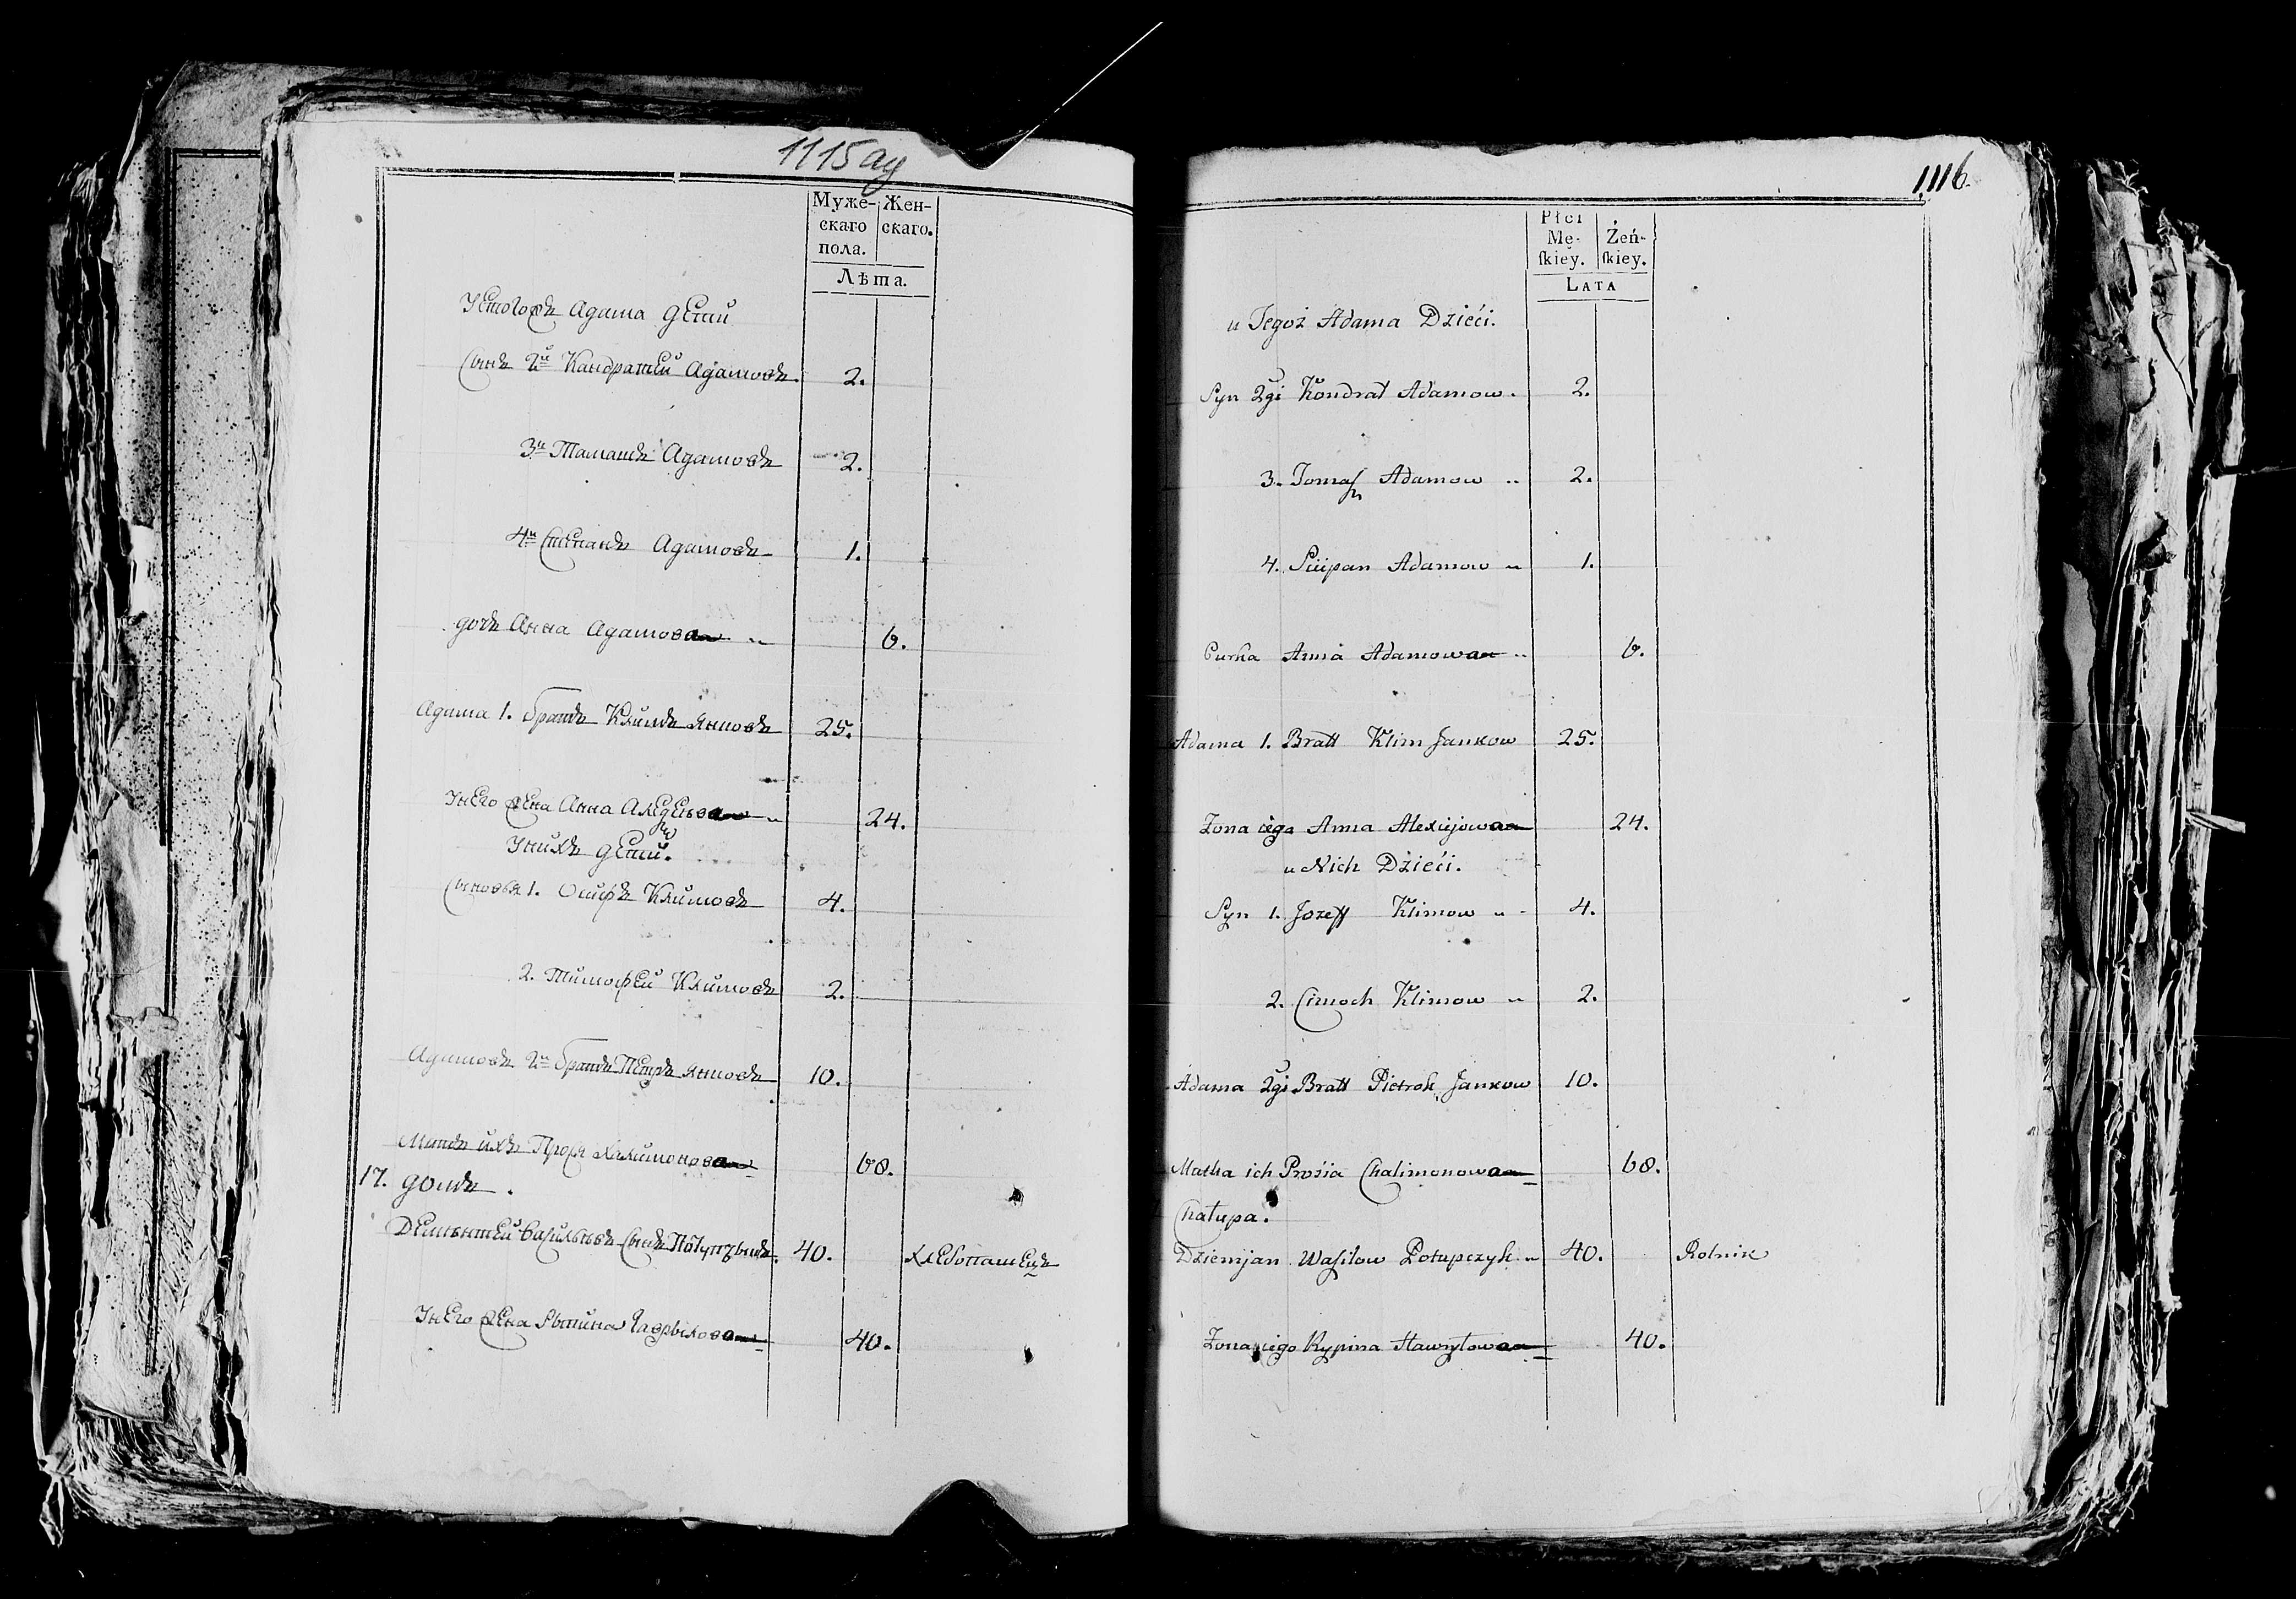 1115 ад
Муже- Жен-
скаго скаго.
пола.
Лѣта.
Утогожъ Адама дети
Сынъ 2й Кандратей Адамовъ 2.
3й Тамашъ Адамовъ 2.
4й Степанъ Адамовъ 1.
дочь Анна Адамова 6.
Адама 1. братъ Климъ Янковъ 25.
Унего жена Анна 24.
Унихъ дети.
Сыновья 1. Осипъ Климовъ 4.
2. Тимофей Климовъ 2.
Адамовъ 2й братъ Петръ Янковъ 10.
Мать ихъ Прося Халимонова 68.
17. домъ.
Васильевъ Сынъ 40. хлебопашецъ
Унего жена Гаврылова 40.
1116.
Płci
Mę- Żeń-
ſkiey. ſkiey.
LATA
u Tegoż Adama Dzieći.
Syn 2gi Kondrat Adamow. 2.
3. Tomaſz Adamow 2.
4. Sciepan Adamow 1.
Curka Anna Adamowa 6.
Adama 1. Bratt Klim Jankow 25.
Zona iego Anna Alexiejowa 24.
u Nich Dzieći.
Syn 1. Jozeff Klimow 4.
2. Cimoch Klimow 2.
Adama 2gi Bratt Pietrok Jankow 10.
Matka ich Prosia Chalimonowa 68.
Chałupa.
Dziemjan Waſilow Potupczyk 40. Rolnik
Zona iego Kypina Hawryłowa 40.